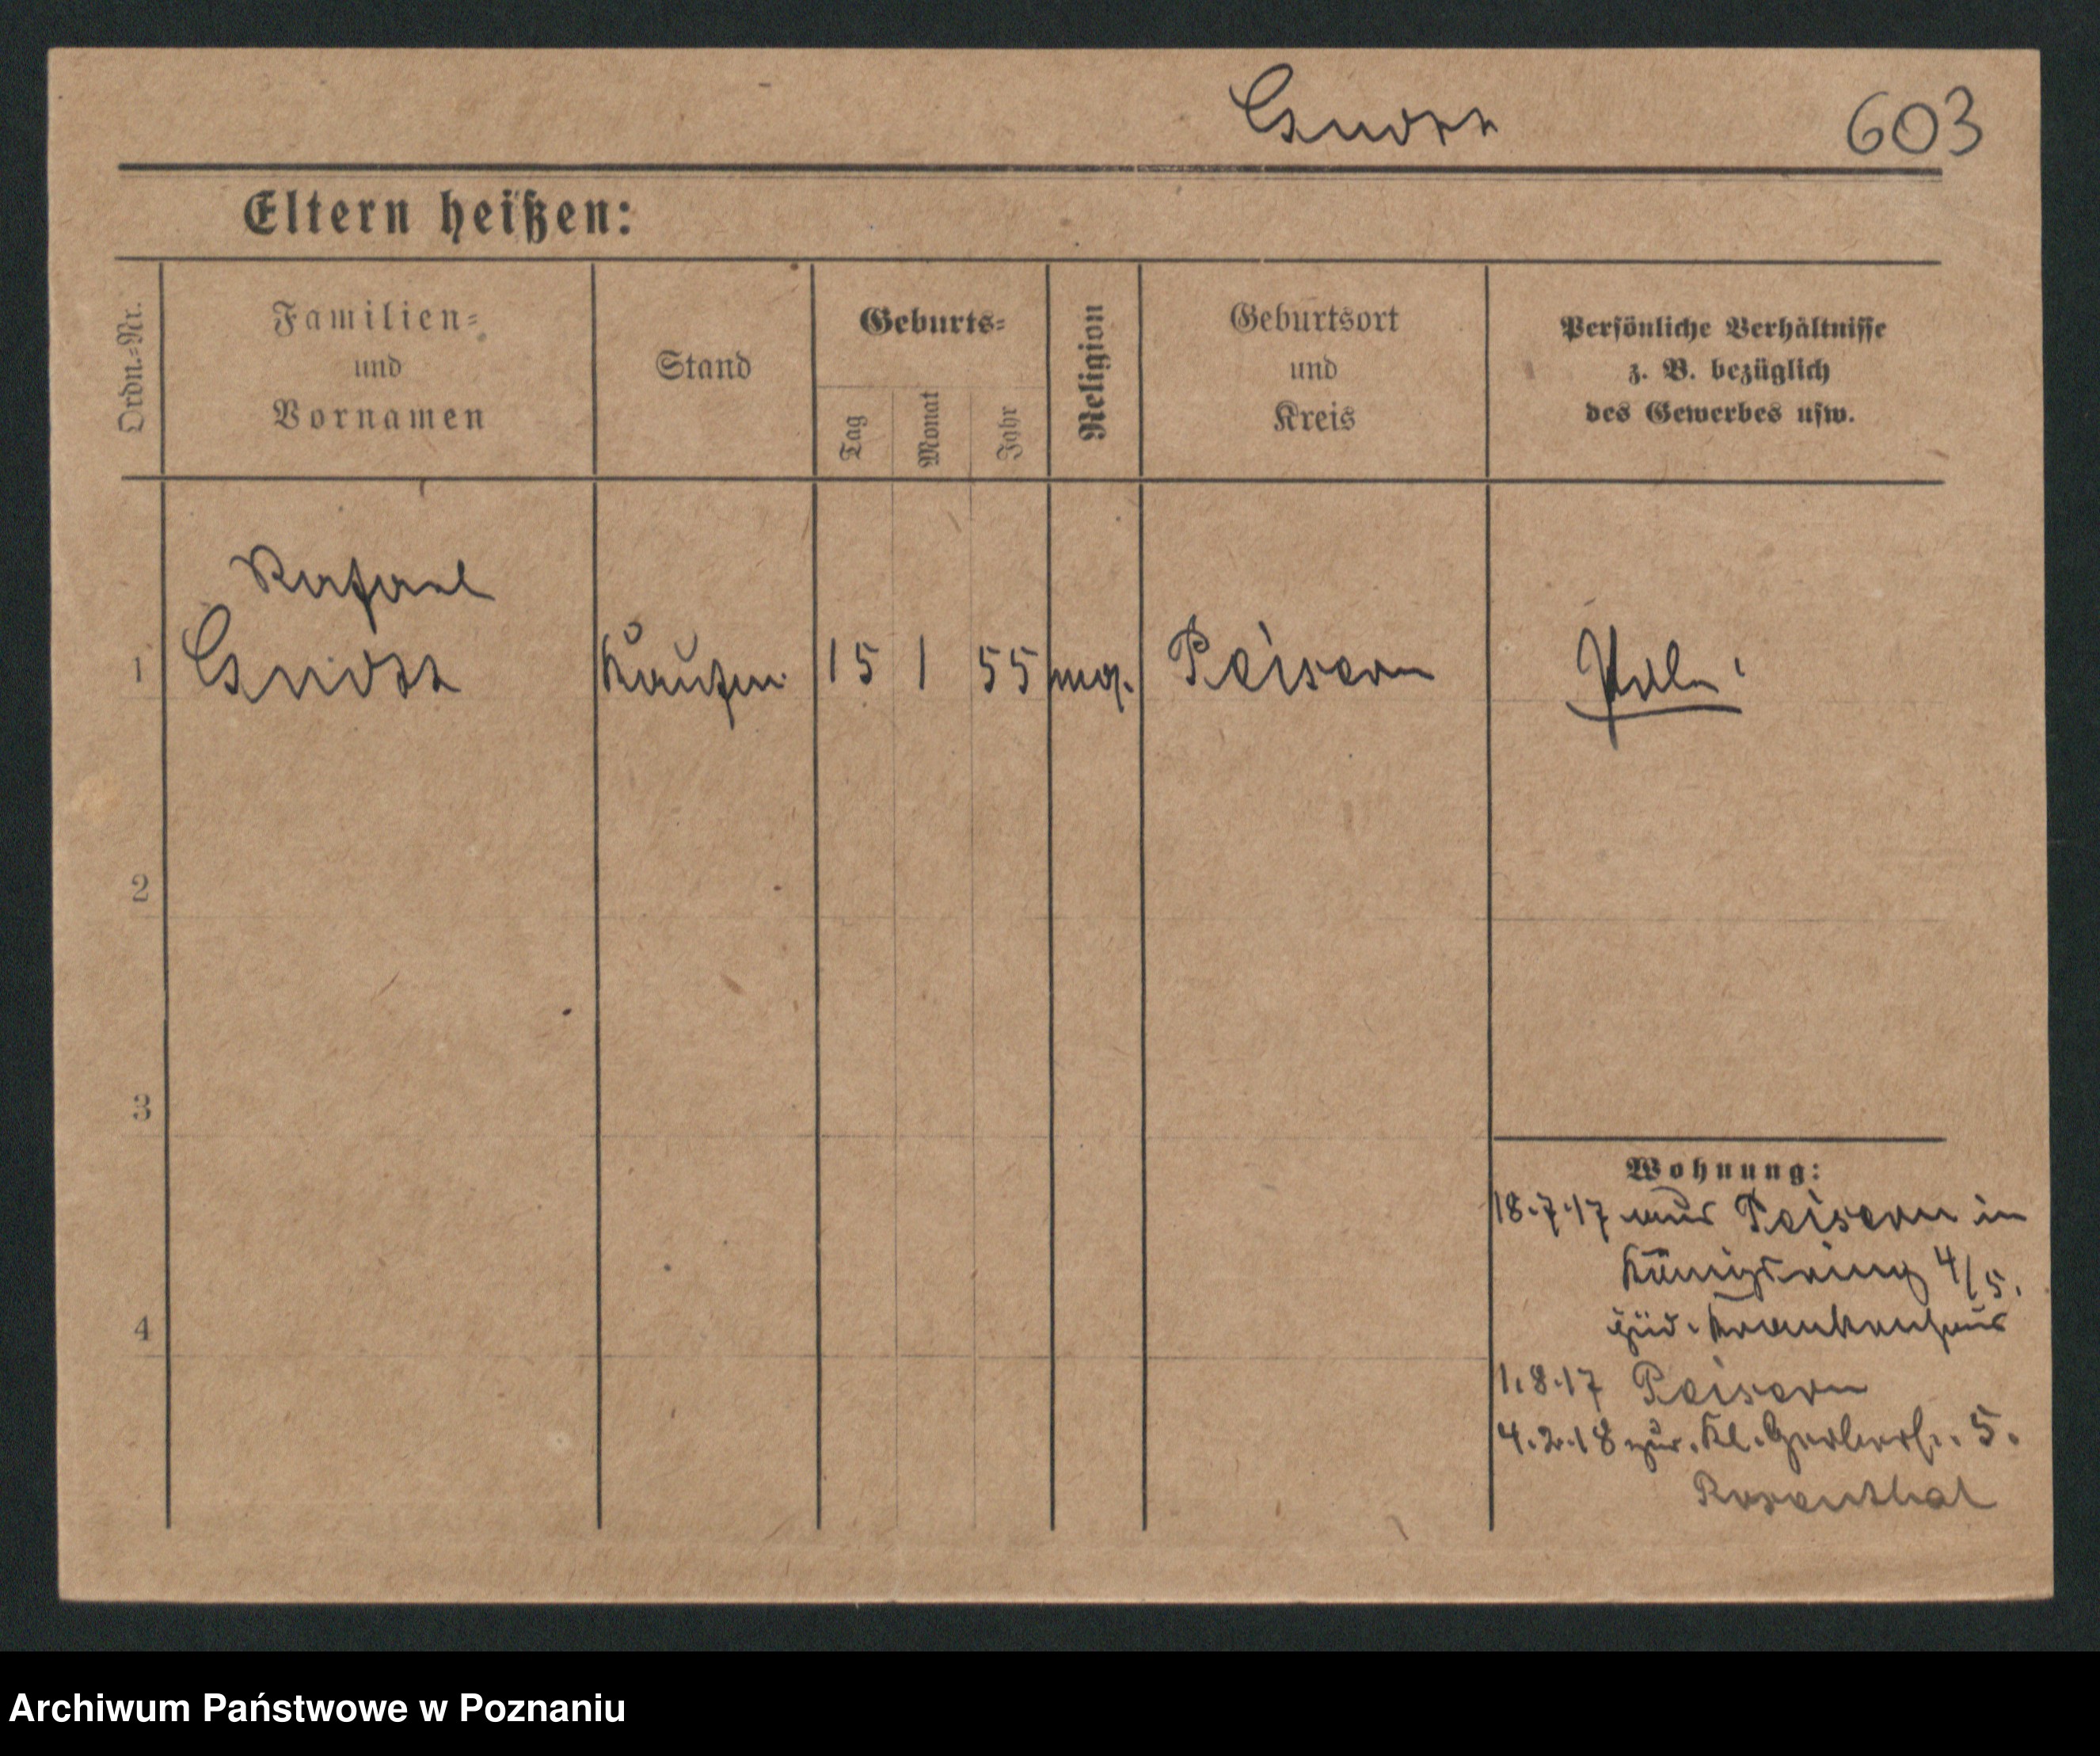 Gnosz 603
Eltern heißen:
Ordn.=Nr.
Familien=
und
Vornamen
Stand
Geburts=
Tag
Monat
Jahr
Religion
Geburtsort
und
Kreis
Persönliche Verhältnisse
z. B. bezüglich
des Gewerbes usw.
Rafael
1 Kaufm. 15 1 55 mos. Peisern
2
3
4
Wohnung:
18.7.17 aus Peisern in
Königsring 4/5.
jüd. Krankenhaus
1.8.17 Peisern
4.2.18 zur. Kl. Gerberstr. 5.
Rosenthal
Archiwum Państwowe w Poznaniu